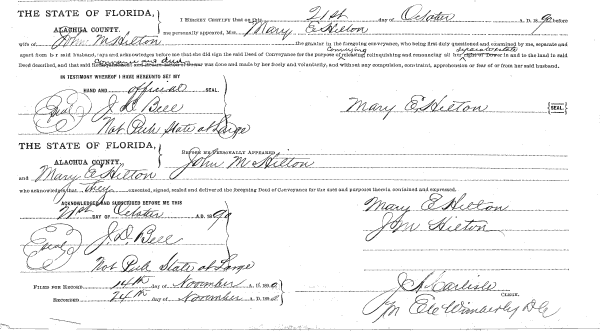 THE STATE OF FLORIDA,
ALACHUA COUNTY.
I HEREBY CERTIFY That on this 21st day of October A. D. 1890 before
me personally appeared, Mrs. Mary E Hilton
wife of John M Hilton the grantor in the foregoing conveyance, who being first duly questioned and examined by me, separate and
conveying separate estate
apart from her said husband, did acknowledge before me that she did sign the said Deed of Conveyance for the purpose of relinquishing and renouncing all her in and to the land in said
conveyance and deed
Deed described, and that said was done and made by her freely and voluntarily, and without any compulsion, constraint, apprehension or fear of or from her said husband.
IN TESTIMONY WHEREOF I HAVE HEREUNTO SET MY
HAND AND official SEAL.
Seal J. D. Bell
Not Pub, State at Large
Mary E Hilton SEAL
THE STATE OF FLORIDA,
ALACHUA COUNTY.
BEFORE ME PERSONALLY APPEARED John M Hilton
and Mary E Hilton
who acknowledge that they executed, signed, sealed and deliver the foregoing Deed of Conveyance for the uses and purposes therein contained and expressed.
ACKNOWLEDGED AND SUBSCRIBED BEFORE ME THIS
21st DAY OF October A. D. 1890
Seal J. D. Bell
Not Pub State at Large
Mary E Hilton
J M Hilton
FILED FOR RECORD 14th day of November A. D. 1890
RECORDED 24th day of November A. D. 1890
J A Carlisle CLERK.
E C Wimberly D C